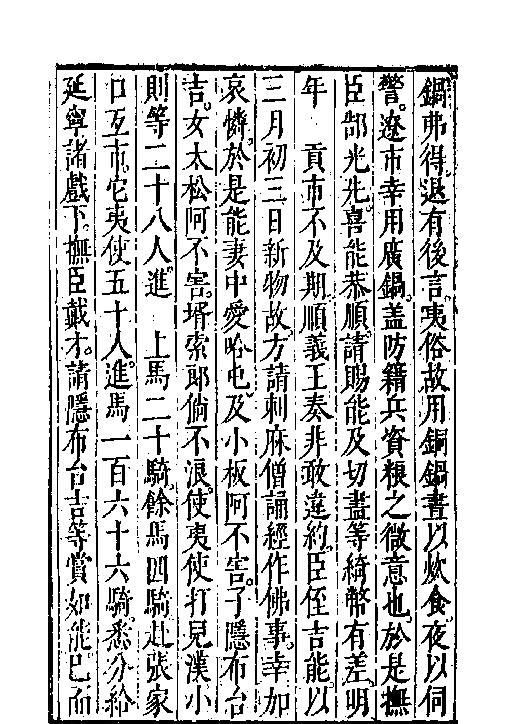 鍋弗得退有後言夷俗故用銅鍋晝以炊食夜以伺
警遼市幸用廣鍋蓋防籍兵資糧之微意也於是撫
臣郜光先喜能恭順請賜能及切盡等綺幣有差明
年　貢市不及期順義王奏非敢違約臣侄吉能以
三月初三日新物故方請刺麻僧誦經作佛事幸加
哀憐於是能妻中愛哈屯及小板阿不害子隱布台
吉女太松阿不害壻索郎倘不浪使夷使打兒漢小
則等二十八人進　上馬二十騎餘馬四騎赴張家
口互市它夷使五十人進馬一百六十六騎悉分給
延寧諸戲下撫臣戴才請隱布台吉等賞如能巳而